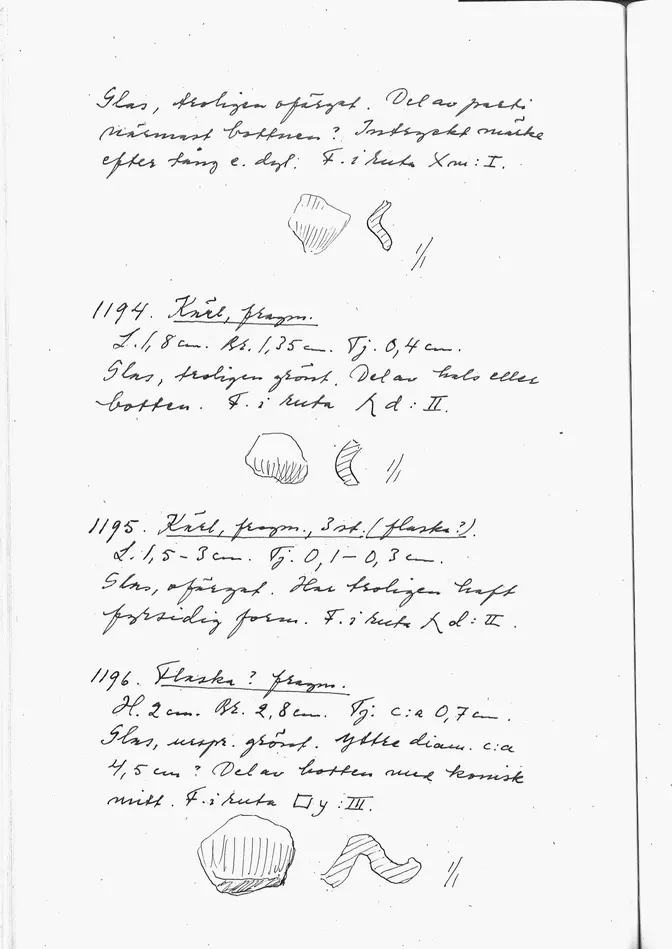 Glas, troligen ofärgat. Del av parti
närmast bottnen? Intryckt märke
efter tång e. dyl. F. i ruta Xm : I.
1/1
1194. Kärl, fragm.
L. 1,8 cm. Br. 1,35 cm. Tj. 0,4 cm.
Glas, troligen grönt. Del av hals eller
botten. F. i ruta d : II.
1/1
1195. Kärl, fragm., 3 st. (flaska?).
L. 1,5-3 cm. Tj. 0,1-0,3 cm.
Glas, ofärgat. Har troligen haft
fyrsidig form. F. i ruta d : II.
1196. Flaska? fragm.
H. 2 cm. Br. 2,8 cm. Tj. c:a 0,7 cm.
Glas, urspr. grönt. Yttre diam. c:a
4,5 cm? Del av botten med konisk
mitt. F. i ruta □y : III.
1/1